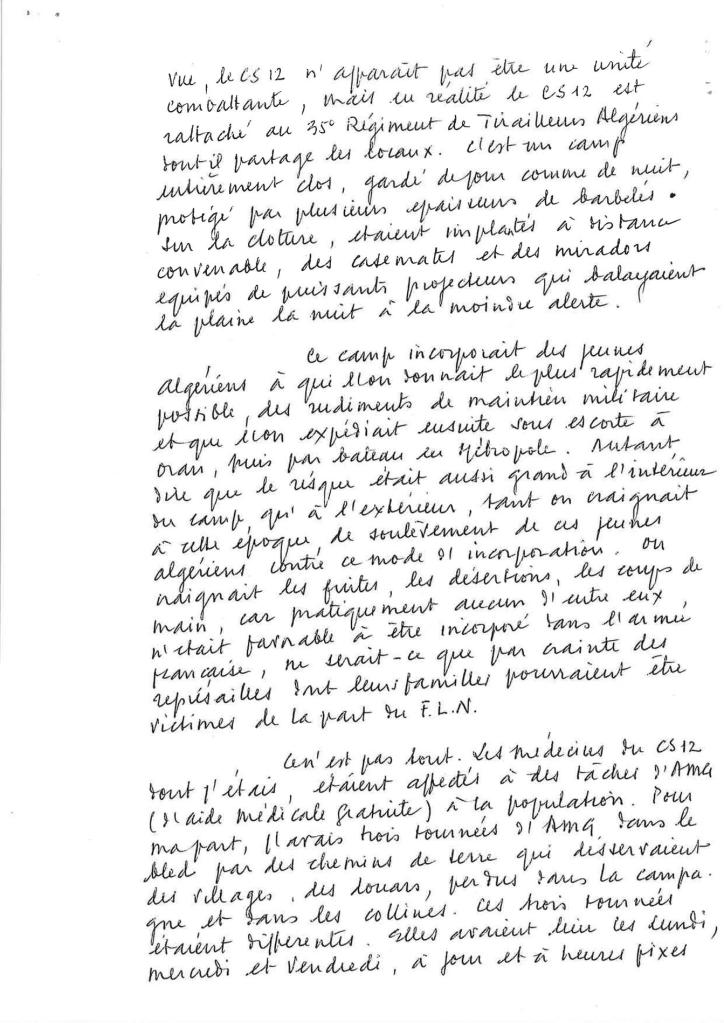 vue, le CS 12 n'apparaît pas être une unité
combattante, mais en réalité le CS 12 est
rattaché au 35e Régiment de Tirailleurs Algériens
dont il partage les locaux. C'est un camp
entièrement clos, gardé de jour comme de nuit,
protégé par plusieurs epaisseurs de barbelés.
Sur la cloture, étaient implantés à distance
convenable, des casemates et des miradors
equipés de puissants projecteurs qui balayaient
la plaine la nuit à la moindre alerte.
Ce camp incorporait des jeunes
Algériens à qui l'on donnait le plus rapidement
possible, des rudiments de maintien militaire
et que l'on expédiait ensuite sous escorte à
Oran, puis par bateau en Métropole. Autant
dire que le risque était aussi grand à l'intérieur
du camp, qu'à l'extérieur, tant on craignait
à cette époque, de soulèvement de ces jeunes
algériens contre ce mode d'incorporation. On
craignait les fuites, les désertions, les coups de
main, car pratiquement aucun d'entre eux
n'était favorable à être incorporé dans l'armée
française, ne serait-ce que par crainte des
représailles dont leurs familles pourraient être
victimes de la part du F.L.N.
Ce n'est pas tout. Les médecins du CS 12
dont j'étais, étaient affectés à des tâches d'AMG
(d'aide médicale gratuite) à la population. Pour
ma part, j'avais trois tournées d'AMG, dans le
bled par des chemins de terre qui desservaient
des villages, des douars, perdus dans la campa-
gne et dans les collines. Ces trois tournées
étaient differentes. Elles avaient lieu les lundi,
mercredi et vendredi, à jour et à heures fixes